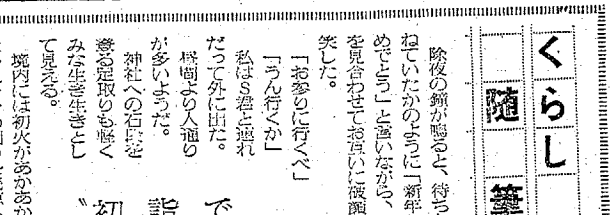 くらし
随筆
除夜の鐘が鳴ると、待ち
ねていたかのように「新年
めでとう」と言いながら、
を見合わせてお互いに破顔
笑した。
「お参りに行くべ」
「うん行くか」
私はS君と連れ
だって外に出た。
昼間より人通り
が多いようだ。
神社への石段を
登る足取りも軽く
みな生き生きとし
て見える。
境内には初火があかあか
で
詣
〝初